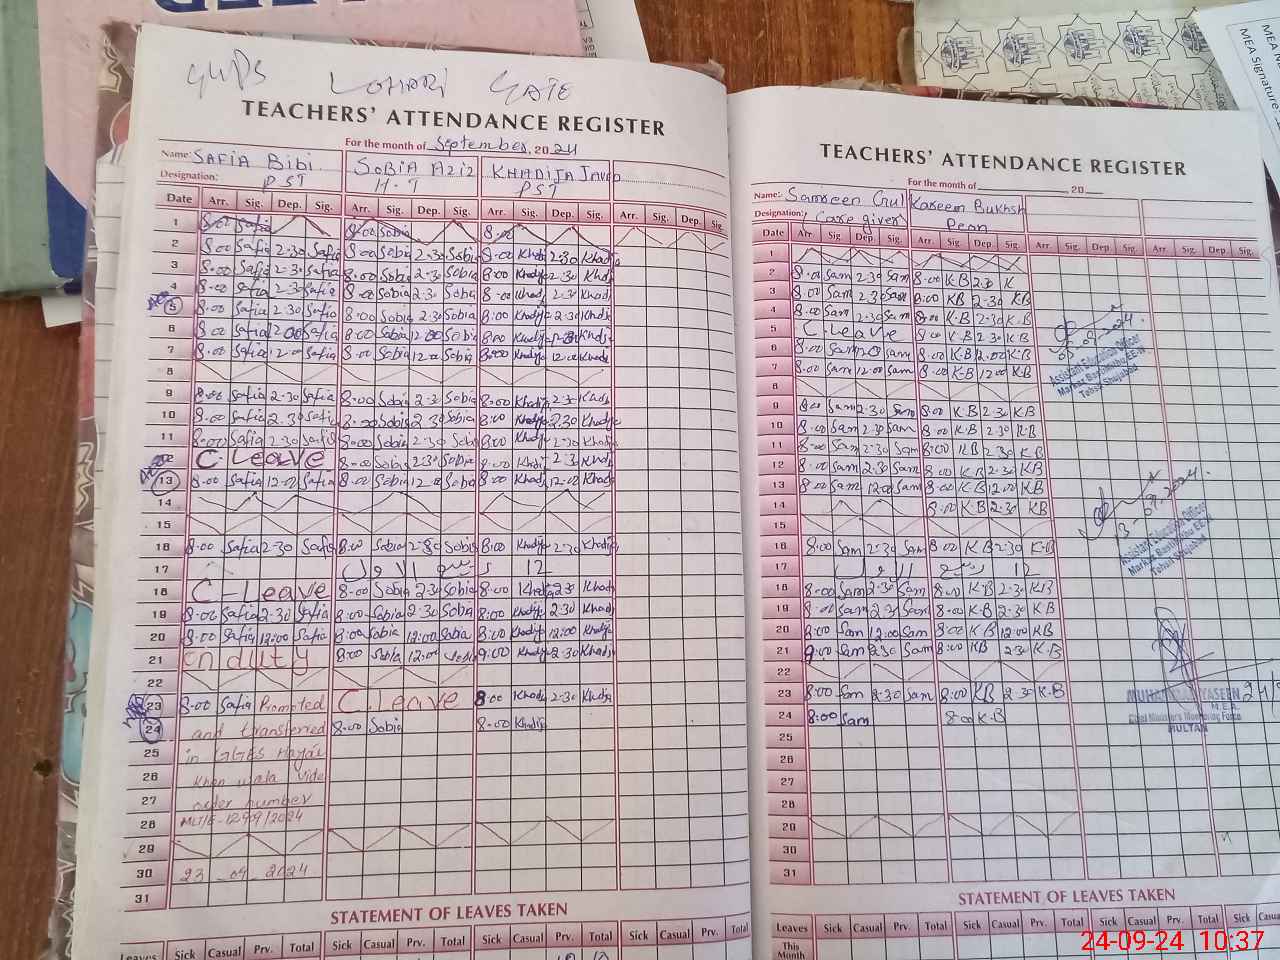 LOHARI GATE
TEACHERS' ATTENDANCE REGISTER
For the month of September, 2024
Name: SAFIA BIBI SOBIA AZIZ KHADIJA Javed
Designation: PST H.T PST
Date Arr. Sig. Dep. Sig. Arr. Sig. Dep. Sig. Arr. Sig. Dep. Sig. Arr. Sig. Dep. Sig.
1 8.00 Safia 8.00 Sobia 8.00
2 8.00 Safia 2.30 Safia 8.00 Sobia 2.30 Sobia 8.00 Khadi 2.30 Khadi
3 8.00 Safia 2.30 Safia 8.00 Sobia 2.30 Sobia 8.00 Khadija 2.30 Khadi
4 8.00 Safia 2.30 Safia 8.00 Sobia 2.30 Sobia 8.00 Khadi 2.30 Khadi
5 8.00 Safia 2.30 Safia 8.00 Sobia 2.30 Sobia 8.00 Khadija 2.30 Khadi
6 8.00 Safia 12.00 Safia 8.00 Sobia 12.00 Sobia 8.00 Khadija Khadi
7 8.00 Safia 12.00 Safia 8.00 Sobia 12.00 Sobia 8.00 Khadija 12.00 Khadi
8
9 8.00 Safia 2.30 Safia 8.00 Sobia 2.30 Sobia 8.00 Khadi 2.30 Khadi
10 8.00 Safia 2.30 Safia 8.00 Sobia 2.30 Sobia 8.00 Khadija 2.30 Khadija
11 8.00 Safia 2.30 Safia 8.00 Sobia 2.30 Sobia 8.00 Khadi 2.30 Khadi
12 C-Leave 8.00 Sobia 2.30 Sobia 8.00 Khadi 2.30 Khadi
13 8.00 Safia 12.00 Safia 8.00 Sobia 12.00 Sobia 8.00 Khadi 12.00 Khadi
14
15
16 8.00 Safia 2.30 Safia 8.00 Sobia 2.30 Sobia 8.00 Khadija 2.30 Khadija
17 12 ربیع الاول
18 C-Leave 8.00 Sobia 2.30 Sobia 8.00 Khadija 2.30 Khadi
19 8.00 Safia 2.30 Safia 8.00 Sobia 2.30 Sobia 8.00 Khadija 2.30 Khadi
20 8.00 Safia 12:00 Safia 8:00 Sobia 12:00 Sobia 8:00 Khadija 12:00 Khadi
21 On duty 8:00 Sobia 12:00 Sobia 9:00 Khadija 2.30 Khadi
22
23 8.00 Safia Promoted C.Leave 8.00 Khadi 2.30 Khadi
24 and transferred 8.00 Sobia 8.00 Khadija
25 in GGES Hayat
26 Khan wala vide
27 order number
28 MLT/E-1299/2024
29
30 23_09_2024
31
STATEMENT OF LEAVES TAKEN
Leaves Sick Casual Prv. Total Sick Casual Prv. Total Sick Casual Prv. Total
TEACHERS' ATTENDANCE REGISTER
For the month of 20
Name: Samreen Gul Kareem Bukhsh
Designation: Care giver Peon
Date Arr. Sig. Dep. Sig. Arr. Sig. Dep. Sig. Arr. Sig. Dep. Sig. Arr. Sig. Dep. Sig.
1
2 8.00 Sam 2.30 Sam 8.00 K.B 2.30 K
3 8.00 Sam 2.30 Sam 8.00 KB 2.30 KB
4 8.00 Sam 2.30 Sam 8.00 K.B 2.30 K.B
5 C-Leave 8.00 K.B 2.30 K.B
6 8.00 Sam Sam 8.00 K.B K.B
7 8.00 Sam 12.00 Sam 8.00 K-B 12.00 K.B
9 8.00 Sam 2.30 Sam 8.00 K.B 2.30 KB
10 8.00 Sam 2.30 Sam 8.00 K.B 2.30 K.B
11 8.00 Sam 2.30 Sam 8.00 KB 2.30 KB
12 8.00 Sam 2.30 Sam 8.00 K.B 2.30 KB
13 8.00 Sam 12.00 Sam 8.00 K.B 12.00 KB
14 8.00 K.B 2.30 KB
15
16 8:00 Sam 2.30 Sam 8.00 KB 2.30 K-B
17 12 ربیع الاول
18 8.00 Sam 2.30 Sam 8.00 K.B 2.30 KB
19 8.00 Sam 2.30 Sam 8.00 K.B 2.30 KB
20 8:00 Sam 12.00 Sam 8:00 K.B 12.00 KB
21 9:00 Sam 2.30 Sam 8:00 K.B 2.30 K.B
22
23 8:00 Sam 2.30 Sam 8.00 KB 2.30 K.B
24 8:00 Sam 8.00 K.B
25
26
27
28
29
30
31
Assistant Education Officer
Tehsil Shujabad
13-09-2024
Assistant Education Officer
Tehsil Shujabad
MUHAMMAD YASEEN
M.E.A.
Chief Minister's Monitoring Force
MULTAN
STATEMENT OF LEAVES TAKEN
Leaves Sick Casual Prv. Total Sick Casual Prv. Total Sick Casual Prv. Total Sick Casual
This
Month
MEA Signature:
24-09-24 10:37